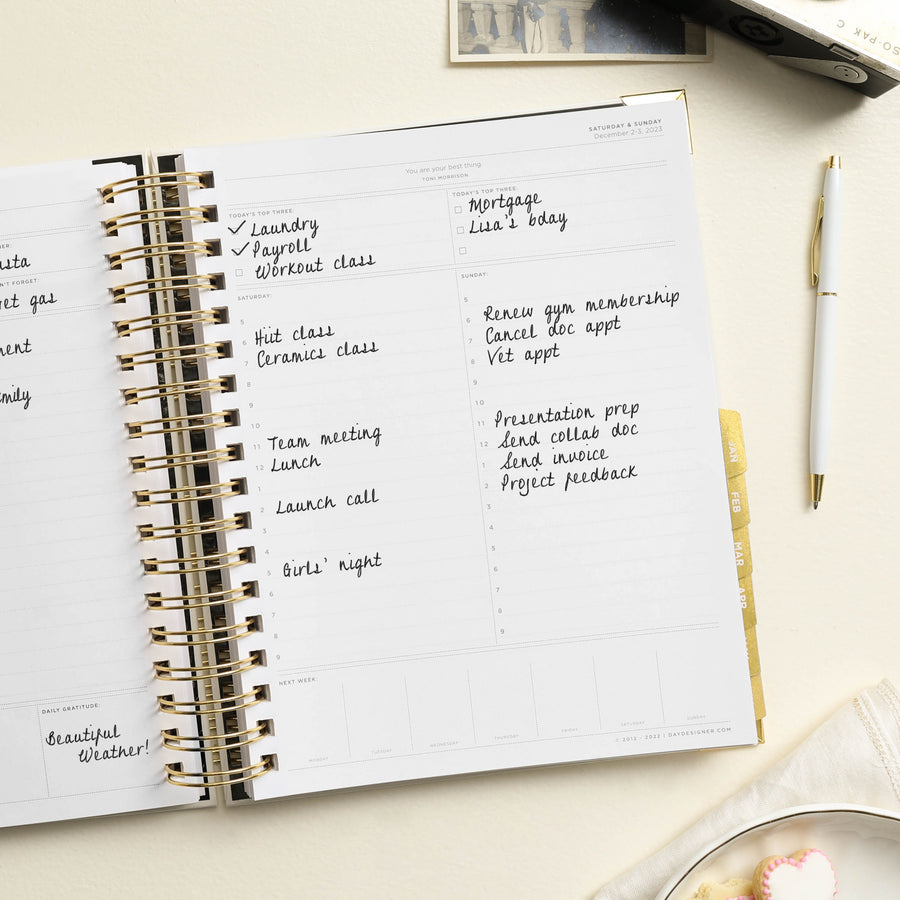 asta
et gas
Beautiful
Weather!
DAILY GRATITUDE:
SATURDAY & SUNDAY
December 2-3, 2023
You are your best thing.
TONI MORRISON
TODAY'S TOP THREE:
Laundry
Payroll
Workout class
TODAY'S TOP THREE:
Mortgage
Lisa's bday
SATURDAY:
5
6 Hiit class
7 Ceramics class
8
9
10
11 Team meeting
12 Lunch
1
2 Launch call
3
4
5 Girls' night
6
7
8
9
SUNDAY:
5
6 Renew gym membership
7 Cancel doc appt
8 Vet appt
9
10
11 Presentation prep
12 Send collab doc
1 Send invoice
2 Project feedback
3
4
5
6
7
8
9
NEXT WEEK:
MONDAY TUESDAY WEDNESDAY THURSDAY FRIDAY SATURDAY SUNDAY
© 2012 - 2022 | DAYDESIGNER.COM
JAN
FEB
MAR
APR